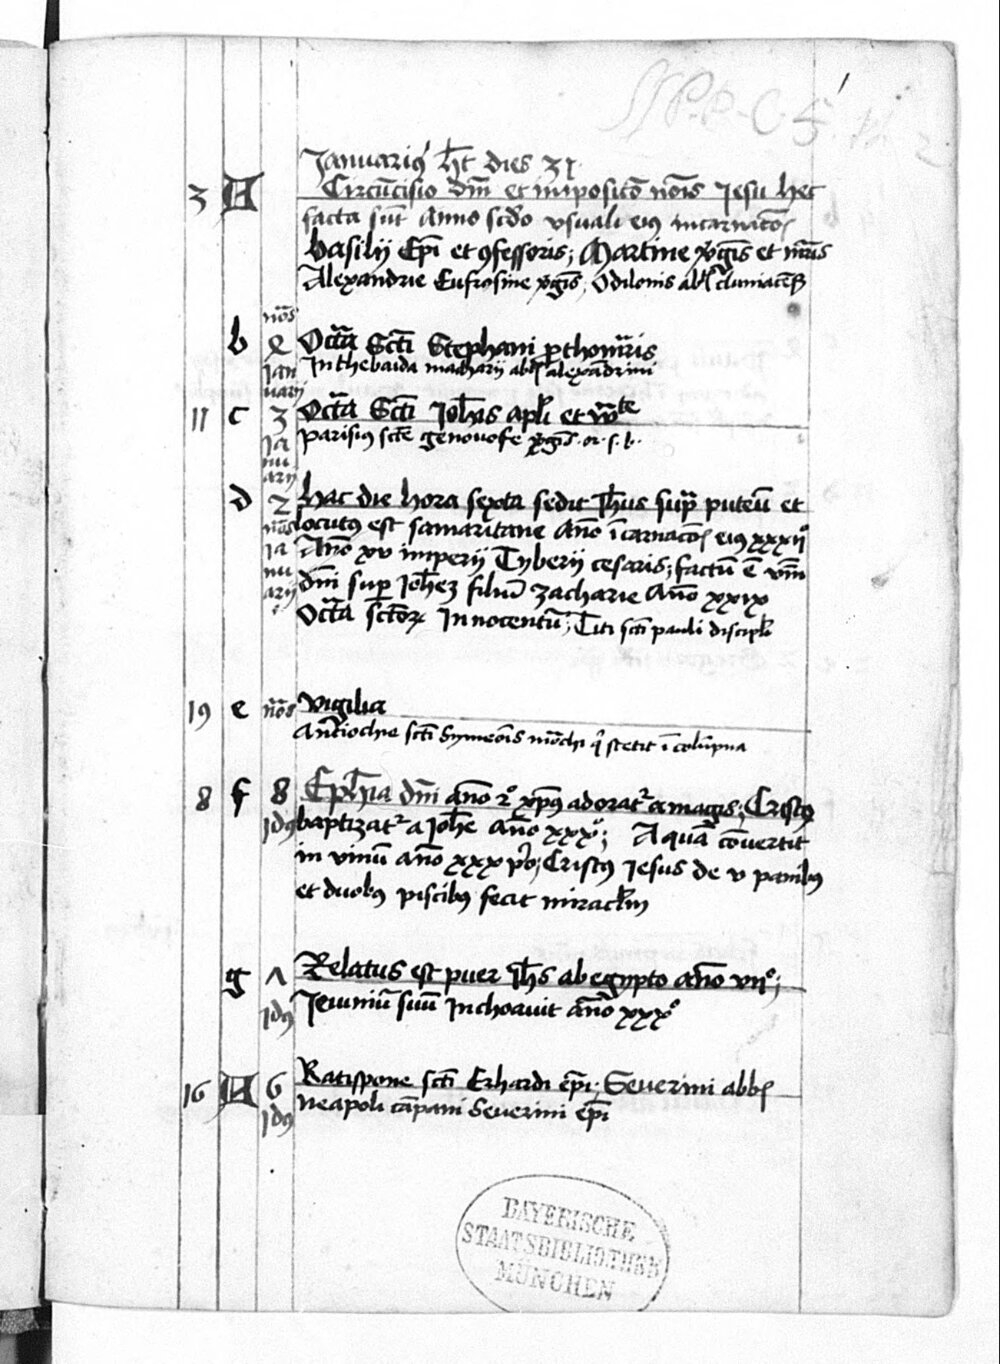 1
SS P. P. C. 5.
Januari9 h̄t dies 31
3 A Circūcisio dn̄i et impositō nōis Jesu hec
facta sūt Anno scdo vsuali ei9 incarnacōis
Basilij Ep̄i et 9fessoris; Martine v̓gīs et m̄ris
Alexandrie Eufrosine v̓gīs, Odilonis abb̄ cluniacēs
b
nōs
e
Jan
uarij
Octāa Scti Stephani p̲thom̄ris
In thebaida macharij abb̄ alexandrini
11 c 3 Octāa Scti Joh̄is apl̄i et ew̄te
Ja
nu
arij
parisius scte genouofe v̓gīs. or. s. b.
d 2 hac die hora sexta sedit Jh̄us supra puteū et
nōs
locut9 est samaritane Año īcarnacōis ei9 xxxij°
Ja
Año xv imperij Tyberij cesaris; factū ē v̄m
nu
arij
dn̄i super Joh̄ez filiū zacharie Año xxix
Octāa sctōrꝝ Innocentū; Titi scti pauli discipl̄i
19 e nōs Vigilia
Antiochie scti Symeōis mōchi q̓ stetit ī colūpna
8 f 8 Eph̄ia dn̄i año 2° xp̄us adorat᷑ a magis; Crist9
Id9 baptizat᷑ a Joh̄e año xxx°; Aquā cōuertit
in vinū año xxx p̊o; Crist9 Jesus de v panib9
et duob9 piscib9 fecit miraclm̄
g Λ Relatus est puer Jh̄s ab egypto año vij°;
Id9 Jeiuniū suū Inchoauit año xxx°
16 A 6 Ratispone scti Erhardi ep̄i; Seuerini abb̄
Id9 Neapoli cāpani Seuerini ep̄i
BAYERISCHE
STAATSBIBLIOTHEK
MÜNCHEN